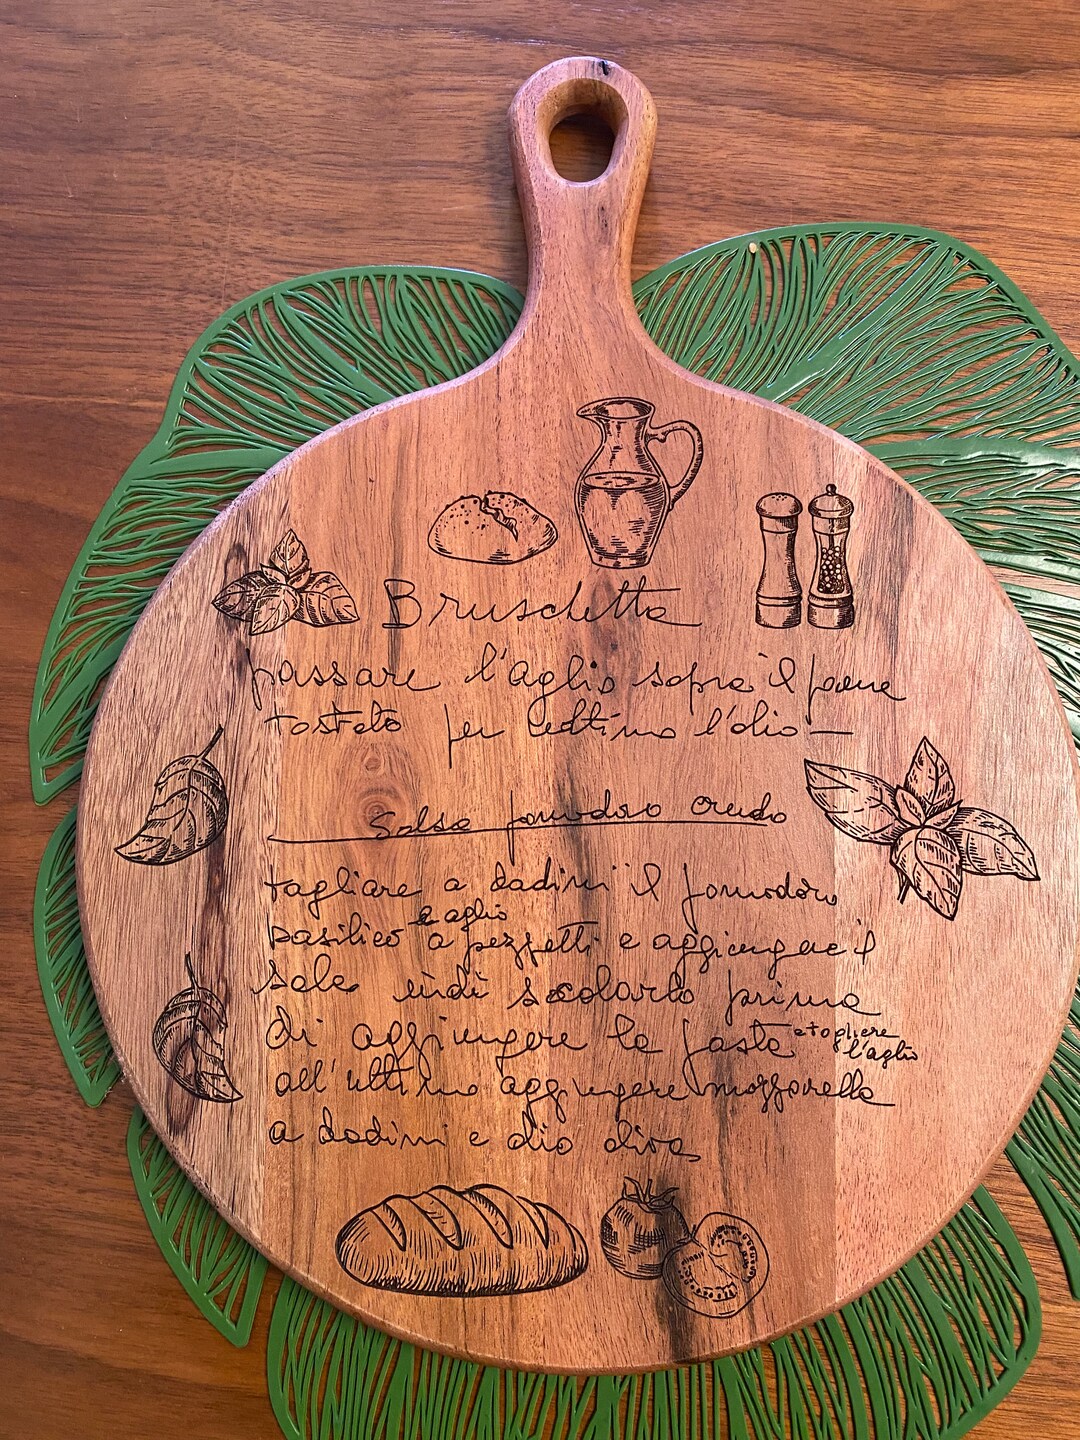 Bruschetta
passare l'aglio sopra il pane
tostato per ultimo l'olio —
Salsa pomodoro crudo
tagliare a dadini il pomodoro
basilico e aglio a pezzetti e aggiungere il
sale indi scolarlo prima
di aggiungere la pasta e togliere l'aglio
all'ultimo aggiungere mozzarella
a dadini e olio oliva